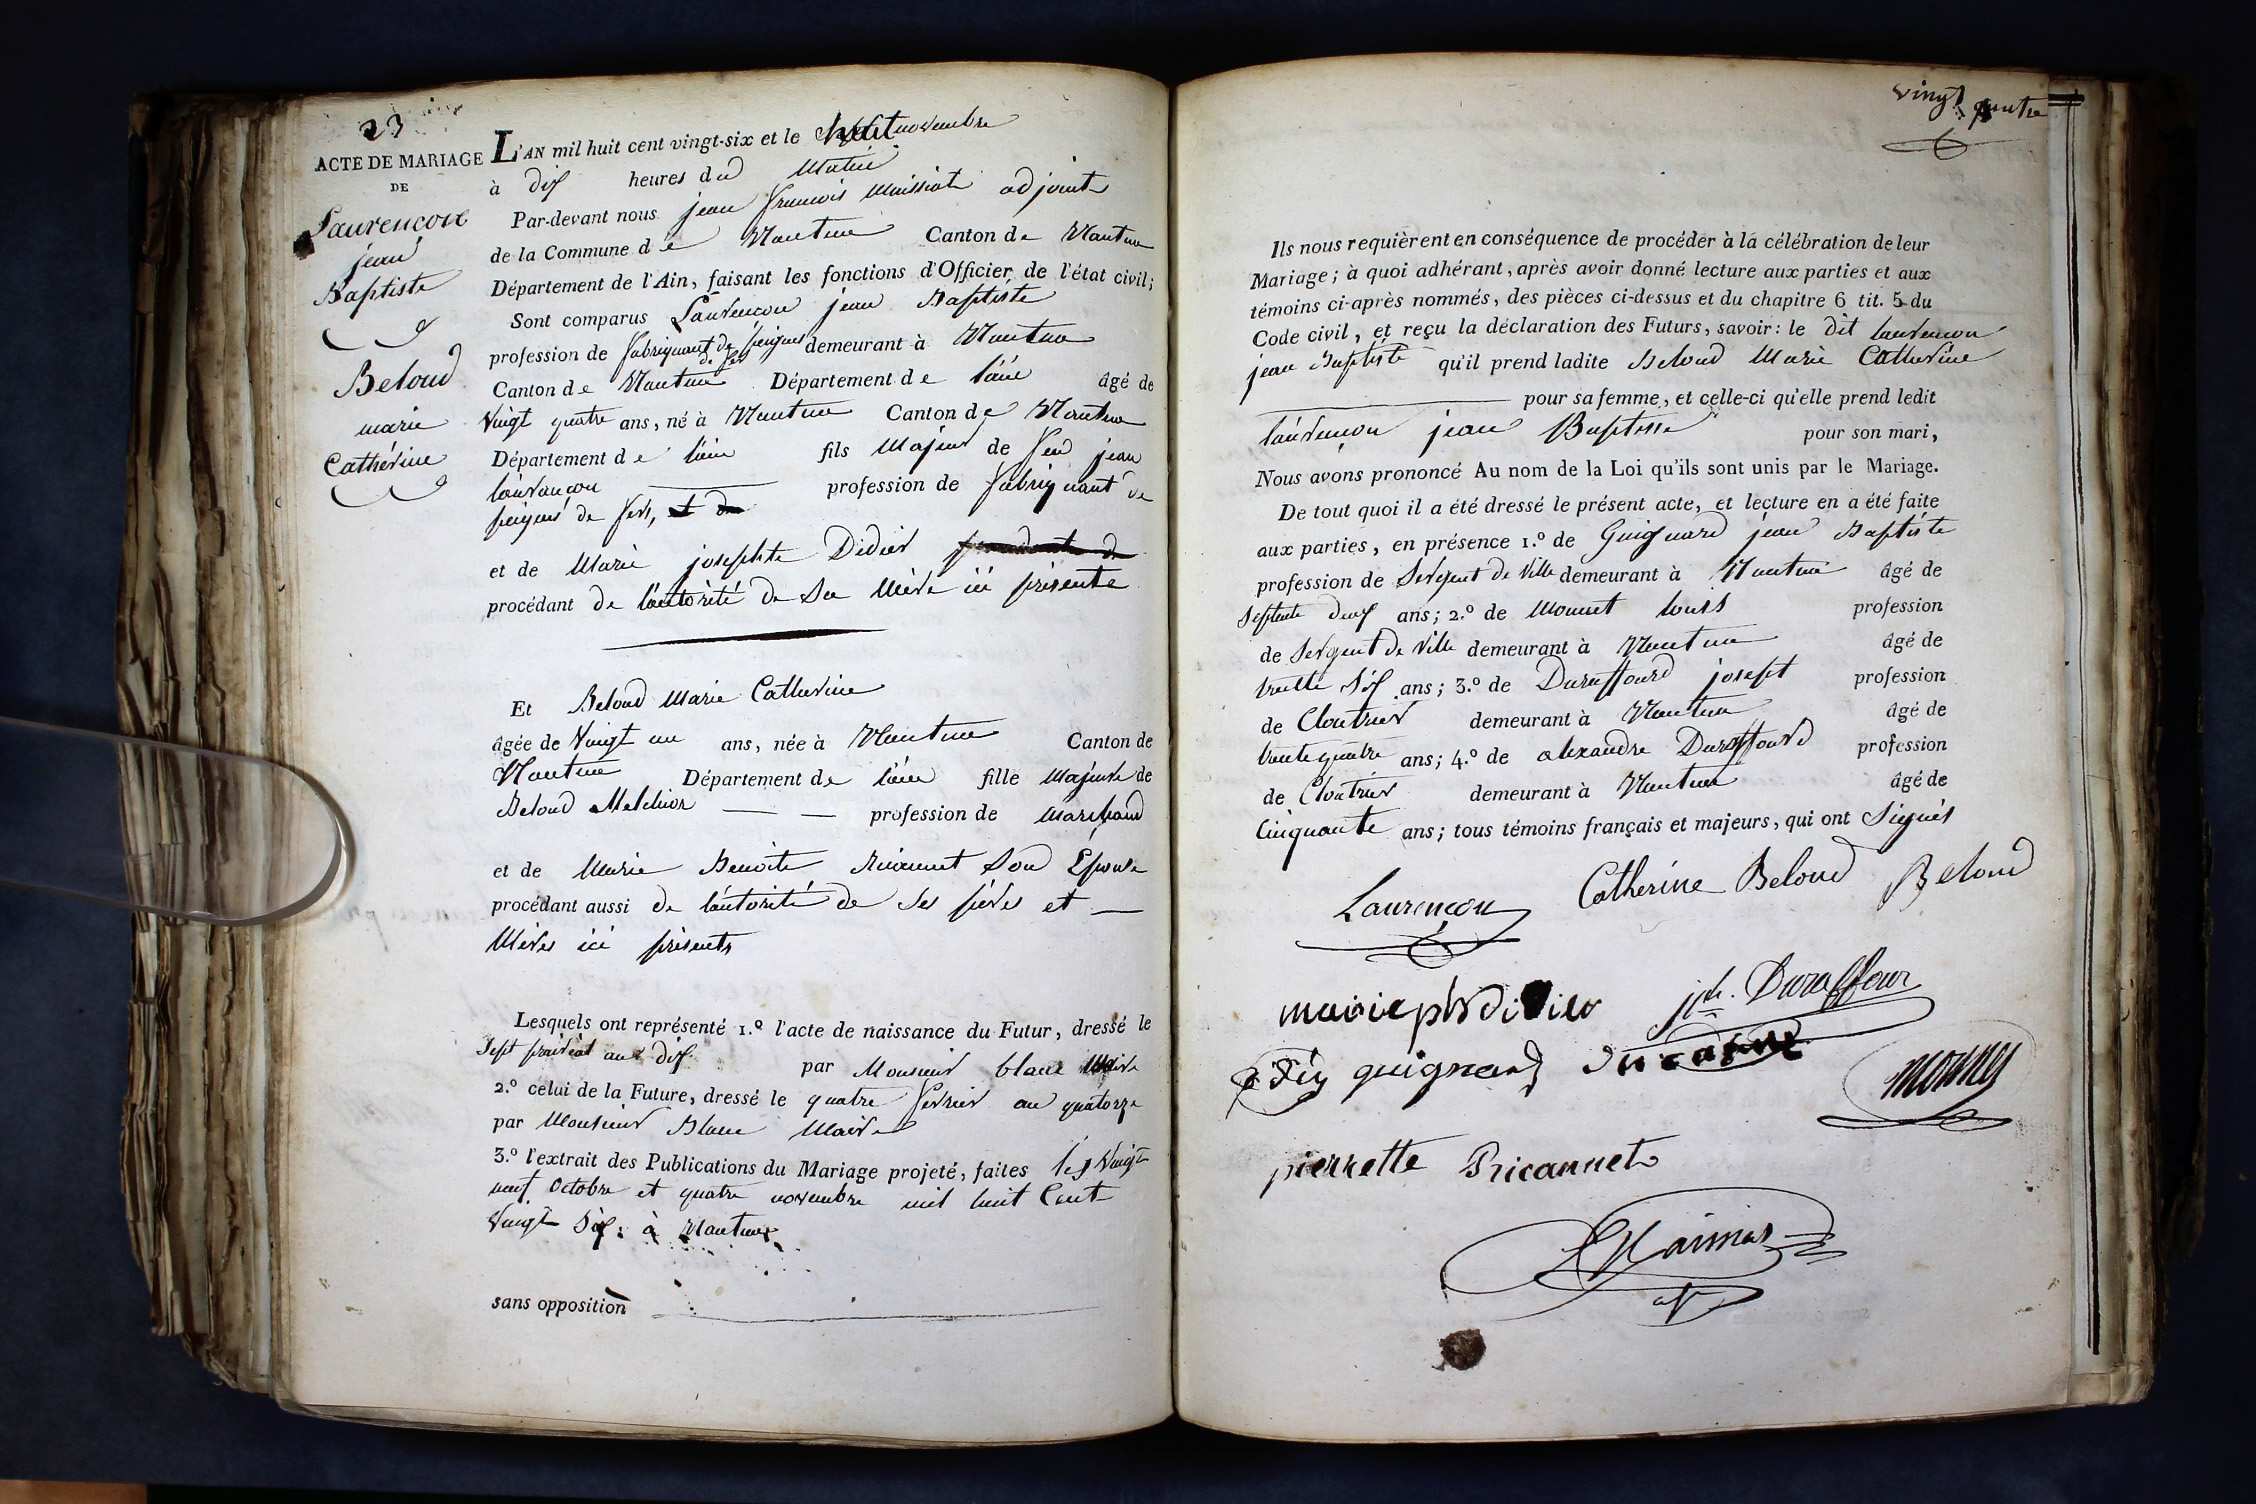 23
ACTE DE MARIAGE
DE
Laurençon
jean
Baptiste
Beloud
marie
Cathérine
L'AN mil huit cent vingt-six et le huit novembre
à dix heures du Matin
Par-devant nous jean francois Maissiat adjoint
de la Commune de Nantua Canton de Nantua
Département de l'Ain, faisant les fonctions d'Officier de l'état civil;
Sont comparus Laurencon jean Baptiste
profession de fabriquant de peignes de fer demeurant à Nantua
Canton de Nantua Département de l'ain âgé de
Vingt quatre ans, né à Nantua Canton de Nantua
Département de l'ain fils Majeur de feu jean
laurançon profession de fabriquant de
peignes de fers,
et de Marie josephte Didier
procédant de l'autorité de Sa Mère ici présente
Et Beloud Marie Catherine
âgée de Vingt un ans, née à Nantua Canton de
Nantua Département de l'ain fille Majeure de
Beloud Melchior profession de Marchand
et de Marie Benoite Ricannet Son Epouse
procédant aussi de l'autorité de Ses pères et
Mères ici présents
Lesquels ont représenté 1.º l'acte de naissance du Futur, dressé le
Sept prairéal an dix par Monsieur blanc Maire
2.º celui de la Future, dressé le quatre fevrier an quatorze
par Monsieur Blanc Maire
3.º l'extrait des Publications du Mariage projeté, faites les Vingt
neuf Octobre et quatre novembre mil huit Cent
Vingt Six à Nantua
sans opposition
vingt quatre
Ils nous requièrent en conséquence de procéder à la célébration de leur
Mariage; à quoi adhérant, après avoir donné lecture aux parties et aux
témoins ci-après nommés, des pièces ci-dessus et du chapitre 6 tit. 5 du
Code civil, et reçu la déclaration des Futurs, savoir: le dit laurencon
jean Baptiste qu'il prend ladite Beloud Marie Catherine
pour sa femme, et celle-ci qu'elle prend ledit
laurençon jean Baptiste pour son mari,
Nous avons prononcé Au nom de la Loi qu'ils sont unis par le Mariage.
De tout quoi il a été dressé le présent acte, et lecture en a été faite
aux parties, en présence 1.º de Guignard jean Baptiste
profession de Sergent de Ville demeurant à Nantua âgé de
Septente deux ans; 2.º de Monnet louis profession
de Sergent de Ville demeurant à Nantua âgé de
trente Six ans; 3.º de Duraffourd josept profession
de Cloutrier demeurant à Nantua âgé de
trente quatre ans; 4.º de alexandre Duraffourd profession
de Cloutrier demeurant à Nantua âgé de
Cinquante ans; tous témoins français et majeurs, qui ont Signés
Laurençon Catherine Beloud Beloud
jh. Duraffour
guignard
monney
pierrette Ricannet